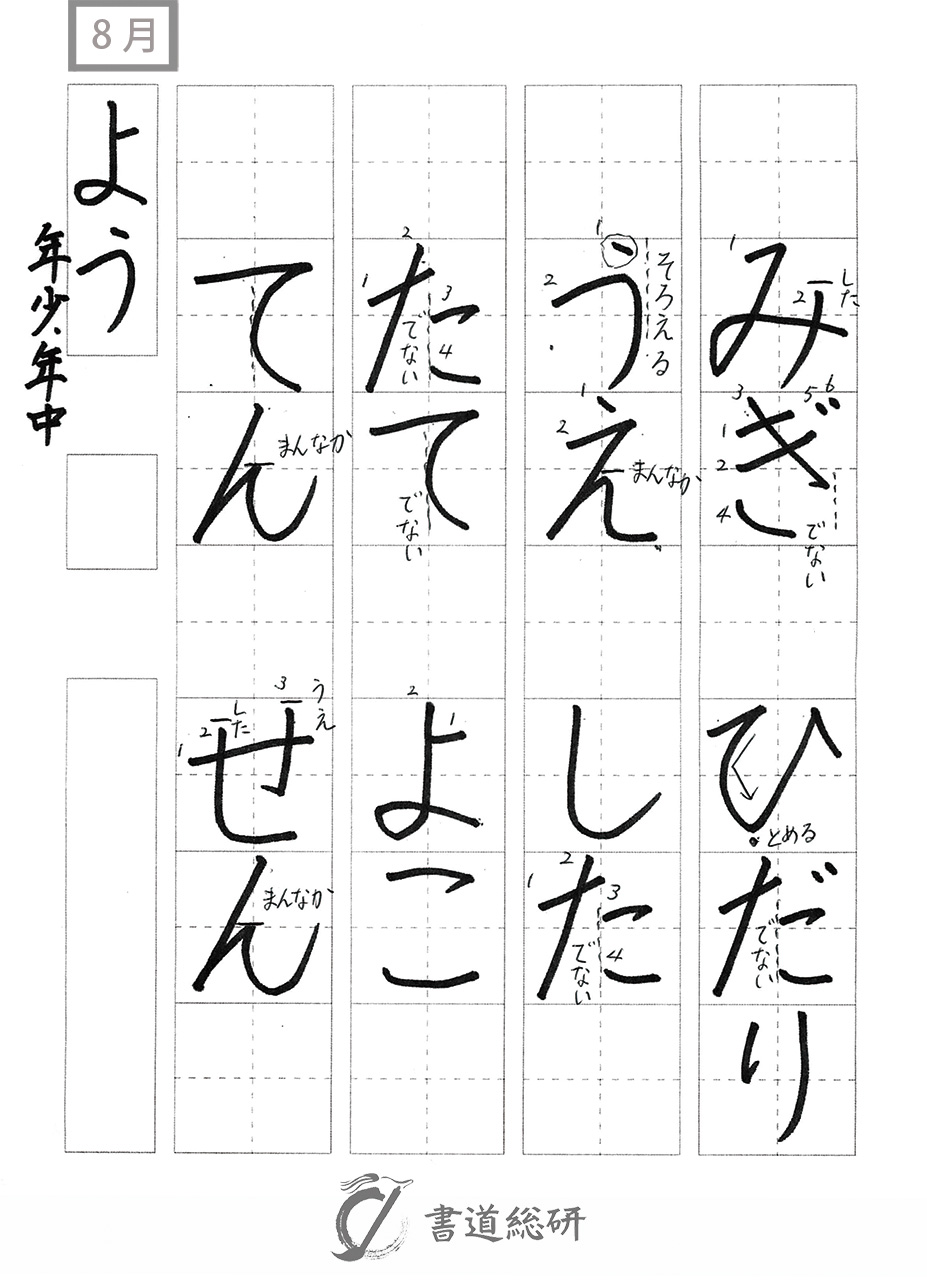 8月
みぎ ひだり
1
2
した
3
1
2
4
5
6
でない
とめる
でない
うえ した
1
2
そろえる
1
2
まんなか
1
2
3
4
でない
たて よこ
1
2
3
4
でない
でない
2
1
てん せん
まんなか
1
2
した
3
うえ
まんなか
よう
年少、年中
書道総研